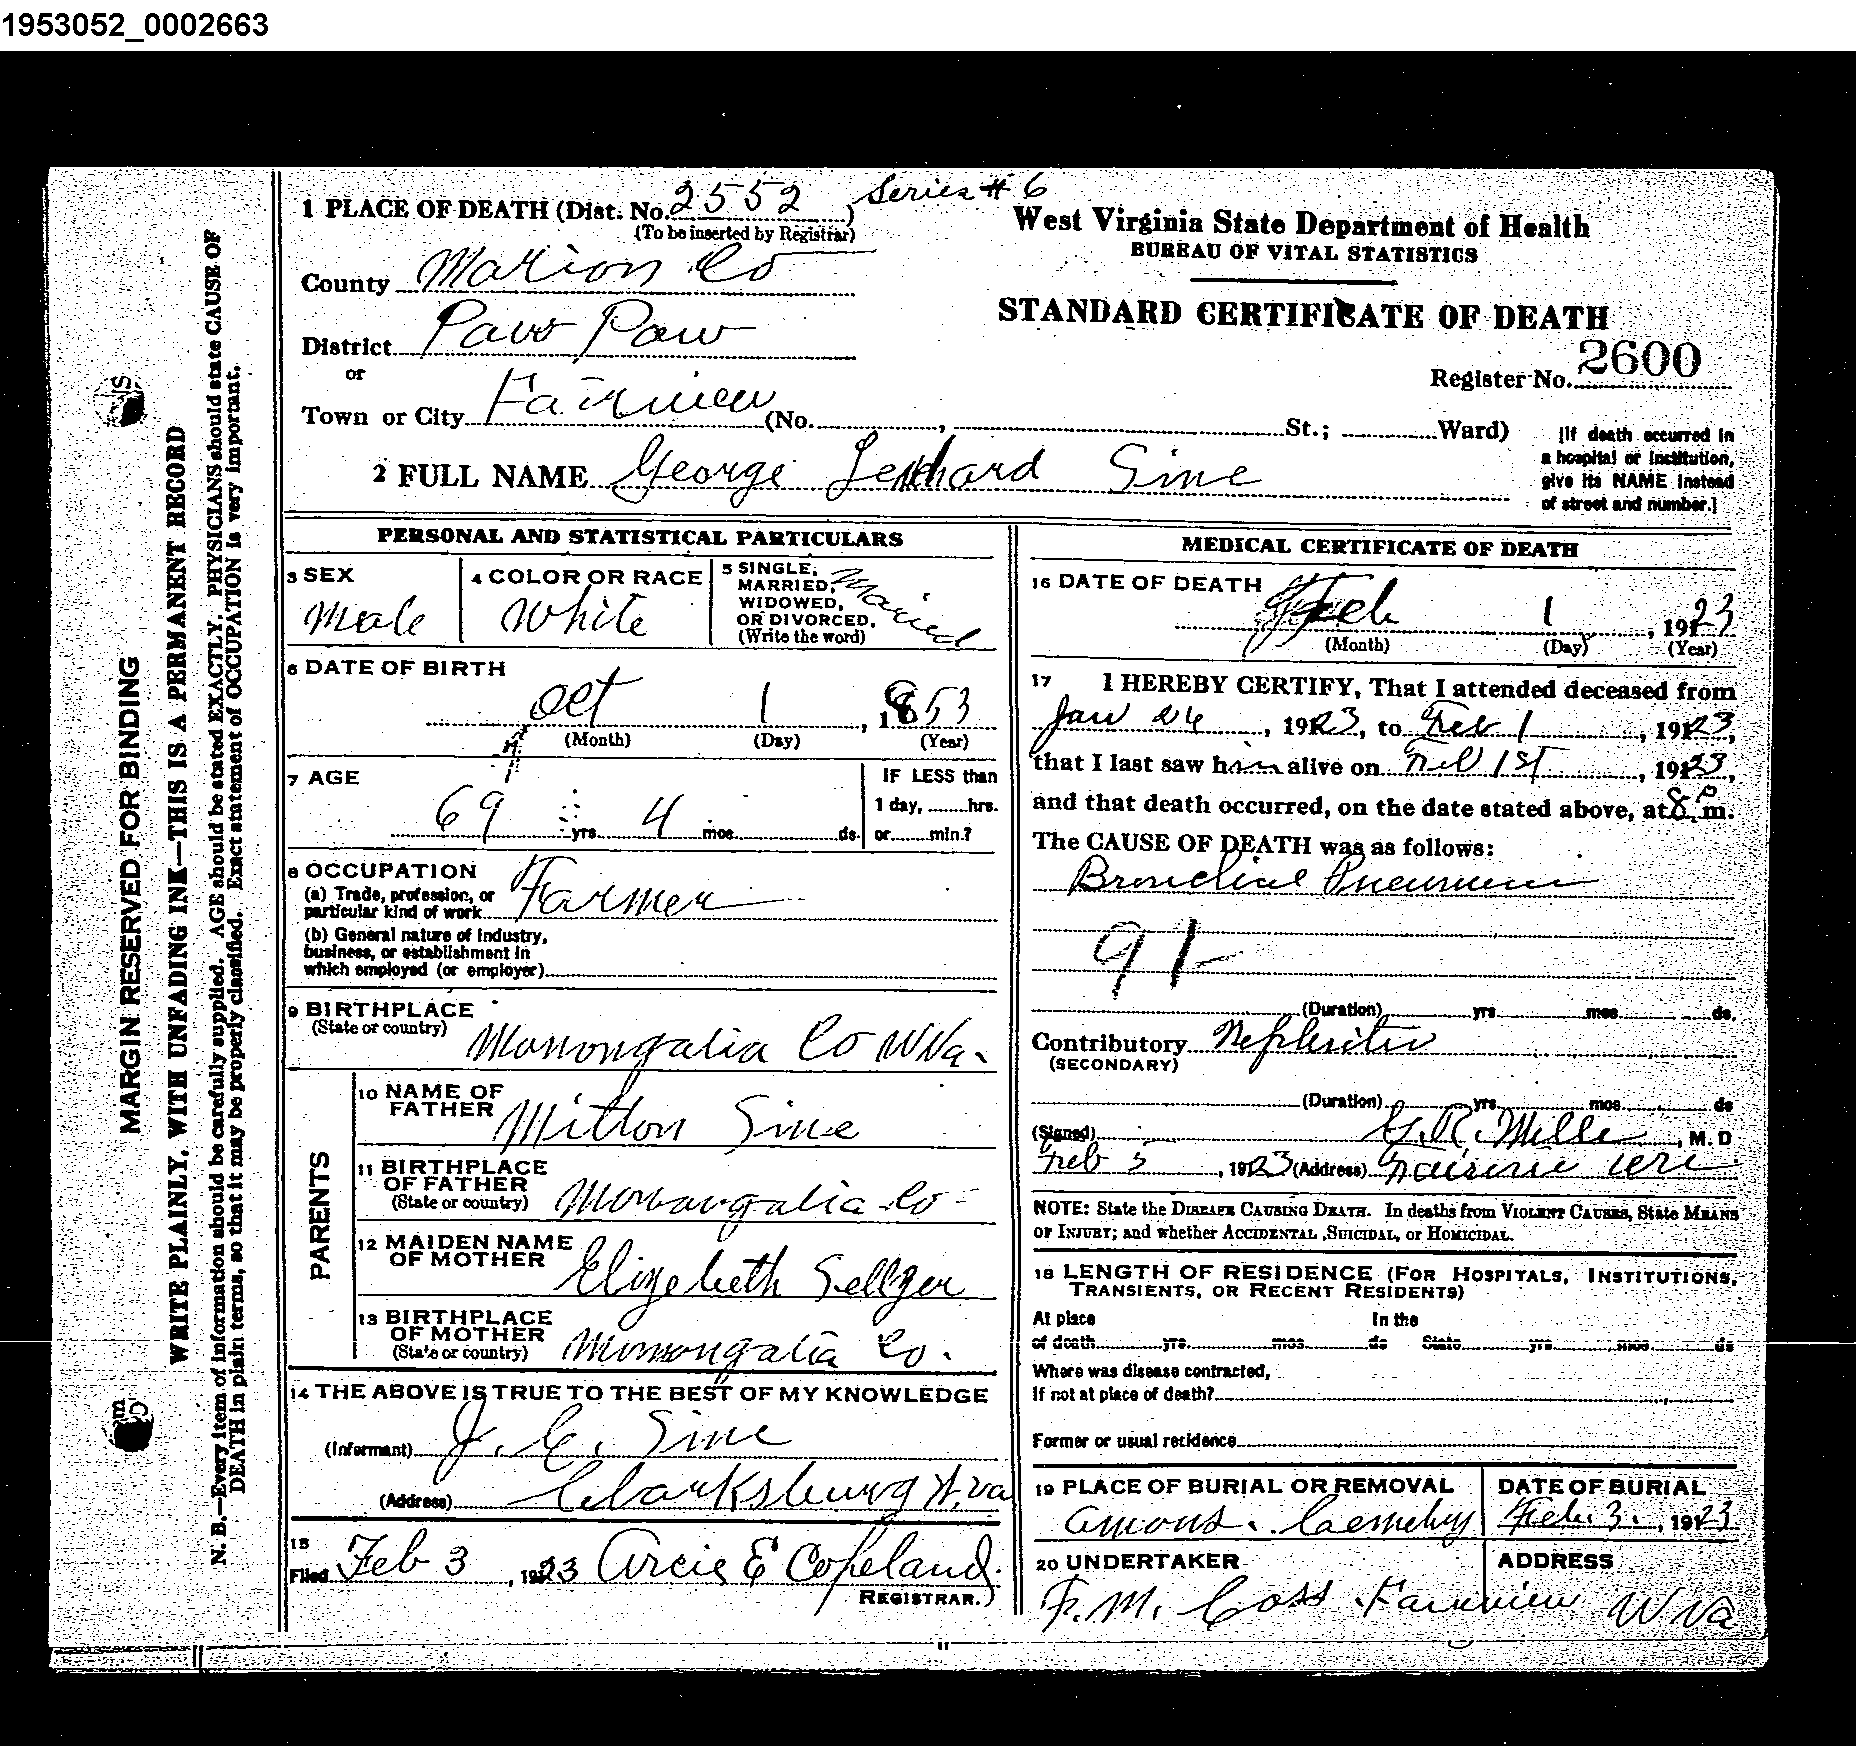 1953052_0002663
1 PLACE OF DEATH (Dist. No. 2552) Series # 6
(To be inserted by Registrar)
County Marion Co
District Paw Paw
or
Town or City Fairview (No. , St.; Ward)
[If death occurred in
a hospital or institution,
give its NAME instead
of street and number.]
West Virginia State Department of Health
BUREAU OF VITAL STATISTICS
STANDARD CERTIFICATE OF DEATH
Register No. 2600
2 FULL NAME George Sine
PERSONAL AND STATISTICAL PARTICULARS
3 SEX
Male
4 COLOR OR RACE
White
5 SINGLE,
MARRIED,
WIDOWED,
OR DIVORCED.
(Write the word)
Married
6 DATE OF BIRTH
Oct 1, 1853
(Month) (Day) (Year)
7 AGE
69 yrs. 4 mos. ds.
IF LESS than
1 day, hrs.
or min.?
8 OCCUPATION
(a) Trade, profession, or
particular kind of work Farmer
(b) General nature of industry,
business, or establishment in
which employed (or employer)
9 BIRTHPLACE
(State or country) Monongalia Co W Va.
PARENTS
10 NAME OF
FATHER Milton Sine
11 BIRTHPLACE
OF FATHER
(State or country) Monongalia Co
12 MAIDEN NAME
OF MOTHER Elizebeth
13 BIRTHPLACE
OF MOTHER
(State or country) Monongalia Co.
14 THE ABOVE IS TRUE TO THE BEST OF MY KNOWLEDGE
(Informant) J. C. Sine
(Address) Clarksburg W. Va
15
Filed Feb 3, 1923 Arcie E Copeland
REGISTRAR.
MEDICAL CERTIFICATE OF DEATH
16 DATE OF DEATH
Feb 1, 1923
(Month) (Day) (Year)
17 I HEREBY CERTIFY, That I attended deceased from
Jan 24, 1923, to Feb 1, 1923,
that I last saw him alive on Feb 1st, 1923,
and that death occurred, on the date stated above, at 8 P. m.
The CAUSE OF DEATH was as follows:
Bronchial Pneumonia
91-
(Duration) yrs mos ds.
Contributory Nephritis
(SECONDARY)
(Duration) yrs mos ds
(Signed) M. D
Feb 5, 1923 (Address)
NOTE: State the DISEASE CAUSING DEATH. In deaths from VIOLENT CAUSES, State MEANS
OF INJURY; and whether ACCIDENTAL, SUICIDAL, or HOMICIDAL.
18 LENGTH OF RESIDENCE (FOR HOSPITALS, INSTITUTIONS,
TRANSIENTS, OR RECENT RESIDENTS)
At place In the
of death yrs. mos. ds State yrs. mos. ds
Where was disease contracted,
If not at place of death?
Former or usual residence
19 PLACE OF BURIAL OR REMOVAL
Amons. Cemetery
DATE OF BURIAL
Feb. 3., 1923
20 UNDERTAKER
F. M. Coss
ADDRESS
Fairview W Va
MARGIN RESERVED FOR BINDING
WRITE PLAINLY, WITH UNFADING INK—THIS IS A PERMANENT RECORD
N. B.—Every item of information should be carefully supplied. AGE should be stated EXACTLY. PHYSICIANS should state CAUSE OF
DEATH in plain terms, so that it may be properly classified. Exact statement of OCCUPATION is very important.